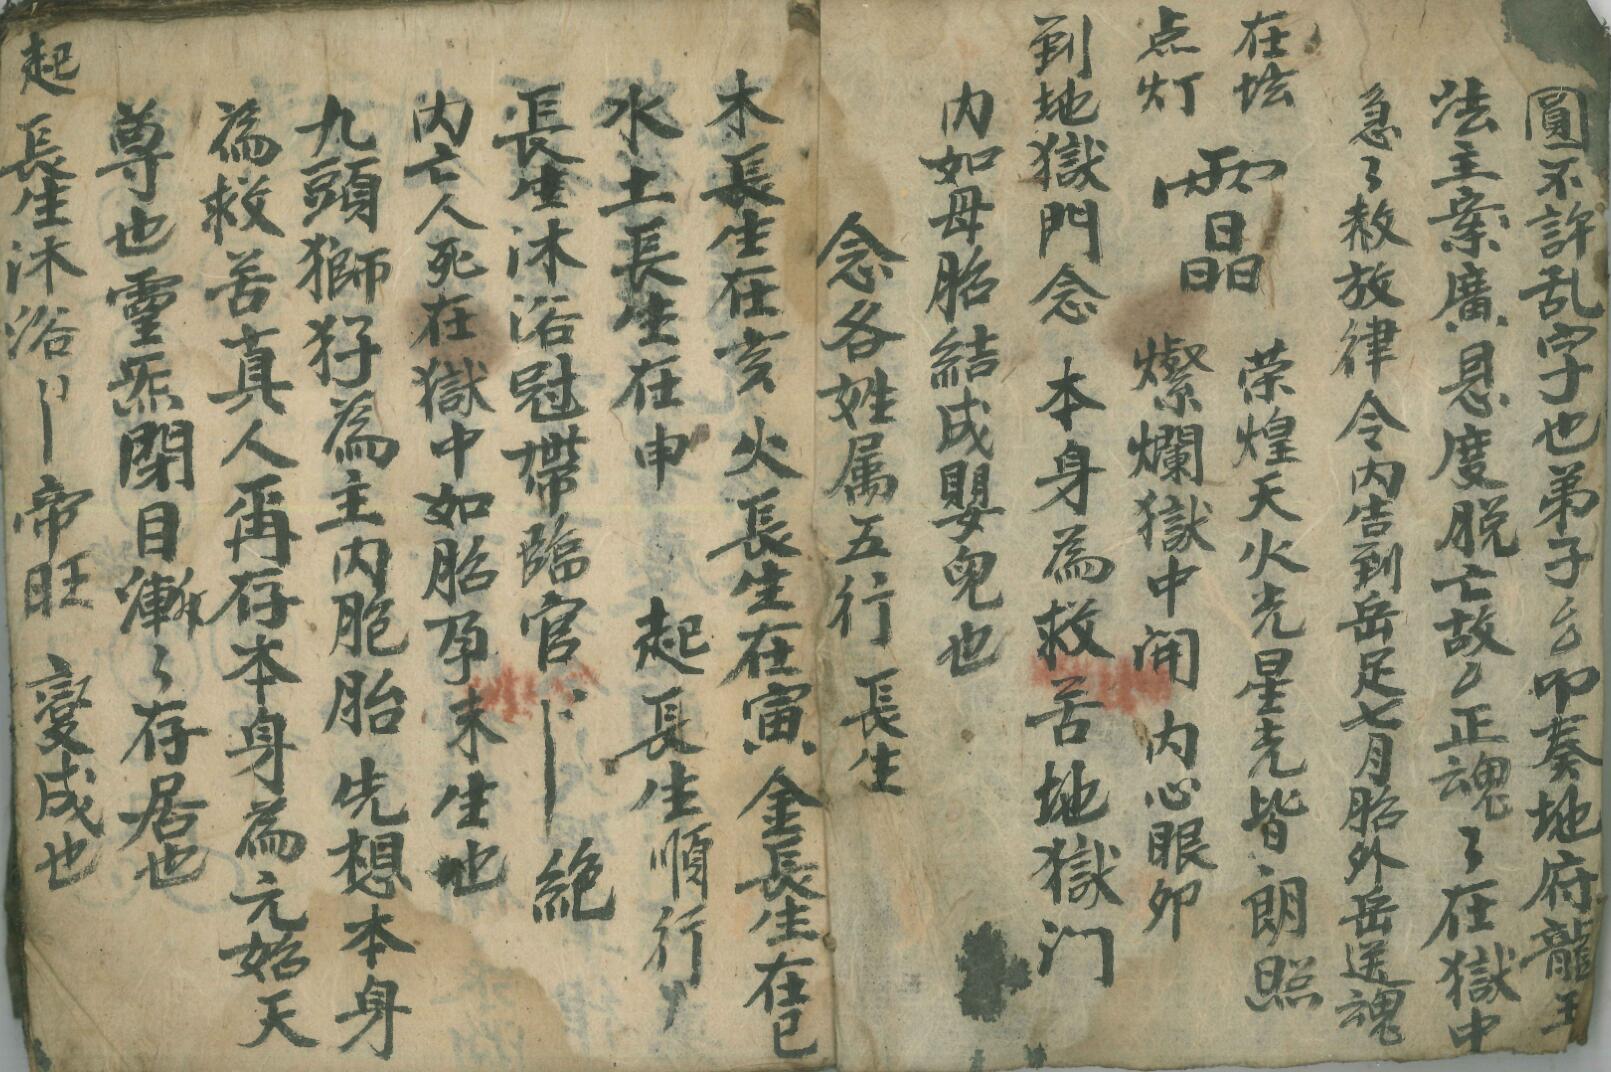 圓不許乱字也弟子厶叩奏地府龍王
法主案廣恩度脱亡故厶正魂〻在獄中
急〻赦放律令内告到岳足七月胎外岳送魂
在坛 荣煌天火光星光皆朗照
点灯 燦爛獄中開 内心眼卯
到地獄門念 本身為救苦地獄门
内如母胎結成嬰兒也
念各姓属五行 長生
木長生在亥火長生在寅金長生在巳
水土長生在申 起長生順行
長生沐浴冠帶臨官 絶
内亡人死在獄中如胎孕未生也
九頭獅犼為主内胞胎先想本身
為救苦真人再存本身為元始天
尊也靈炁閉目漸〻存居也
起長生沐浴 帝旺 變成也